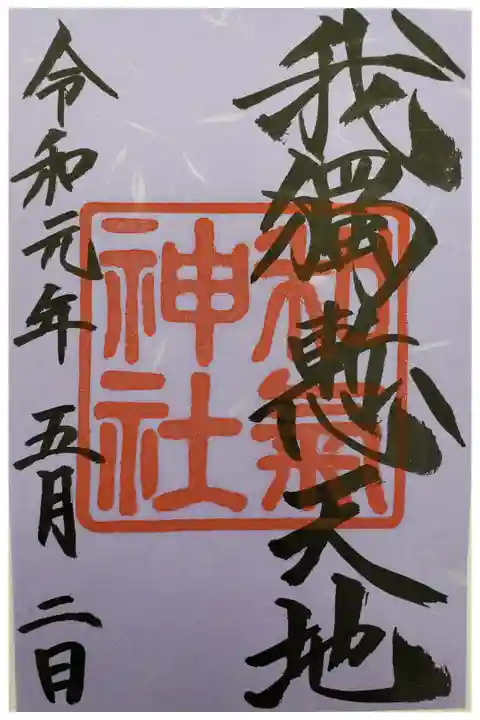 我獨慙天地
和氣
神社
令和元年 五月 二日